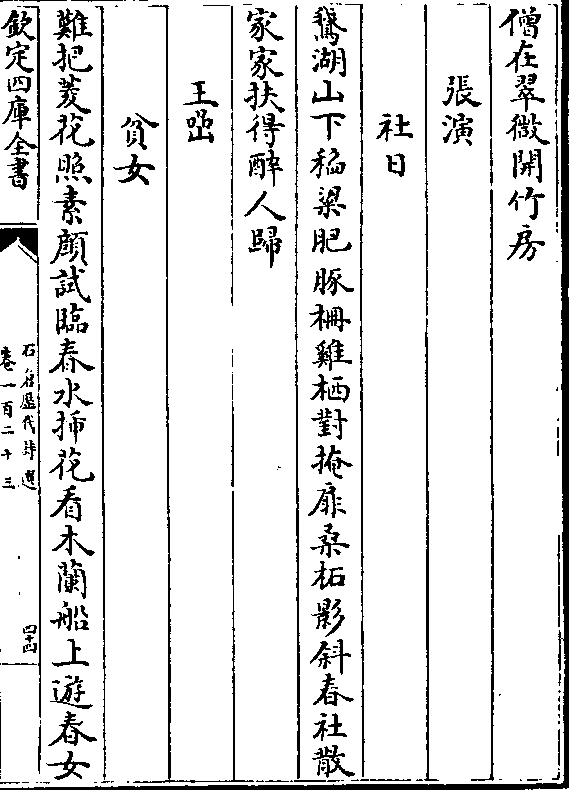 僧在翠微開竹房
張演
社日
鵞湖山下稻粱肥豚柵雞栖對掩扉桑柘影斜春社散
家家扶得醉人歸
王喦
貧女
難把菱花照素顔試臨春水挿花看木蘭船上遊春女
欽定四庫全書
石倉歷代詩選
卷一百二十三
四十四